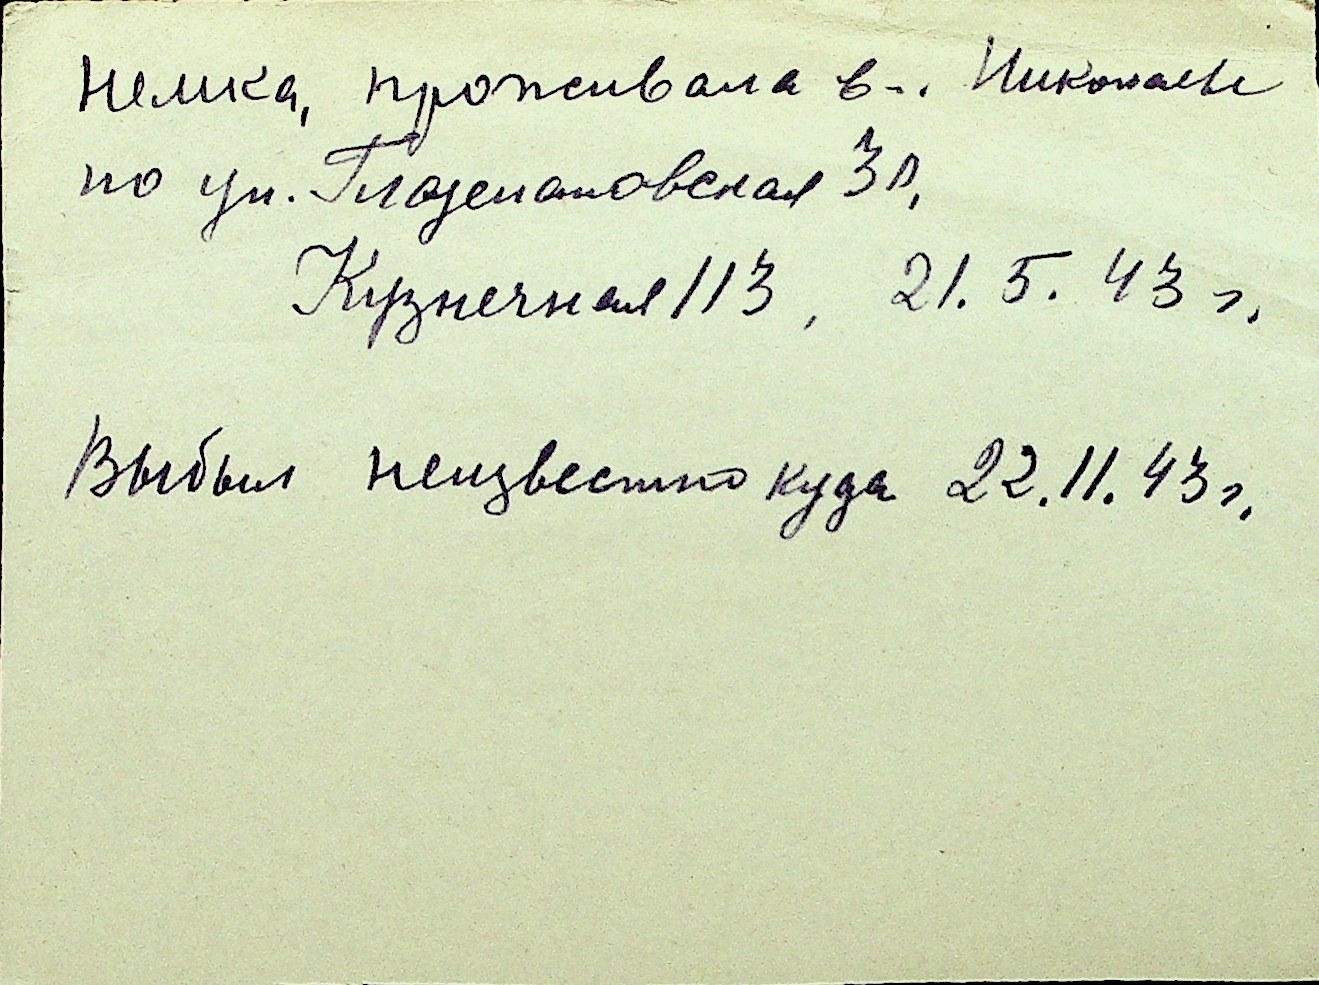 Немка, проживала в г. Николаеве
по ул. Глазенаповская 30,
Кузнечная 113, 21.5.43 г.
Выбыл неизвестно куда 22.11.43 г.